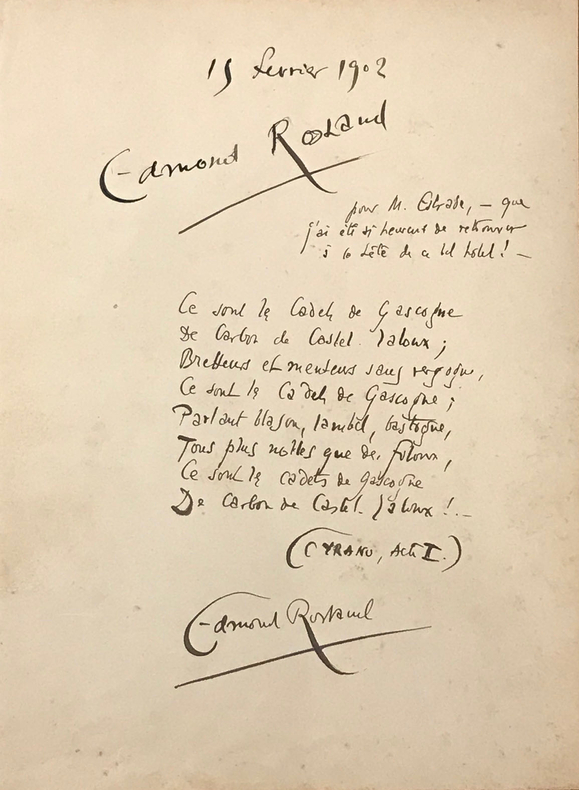 15 février 1902
Edmond Rostand
pour M. Estrade, — que
j'ai été si heureux de retrouver
à la tête de ce bel hôtel ! —
Ce sont les Cadets de Gascogne
De Carbon de Castel-Jaloux ;
Bretteurs et menteurs sans vergogne,
Ce sont les Cadets de Gascogne ;
Parlant blason, lambel, bastogne,
Tous plus nobles que des filoux,
Ce sont les cadets de Gascogne
De Carbon de Castel-Jaloux !..
(CYRANO, Acte I.)
Edmond Rostand